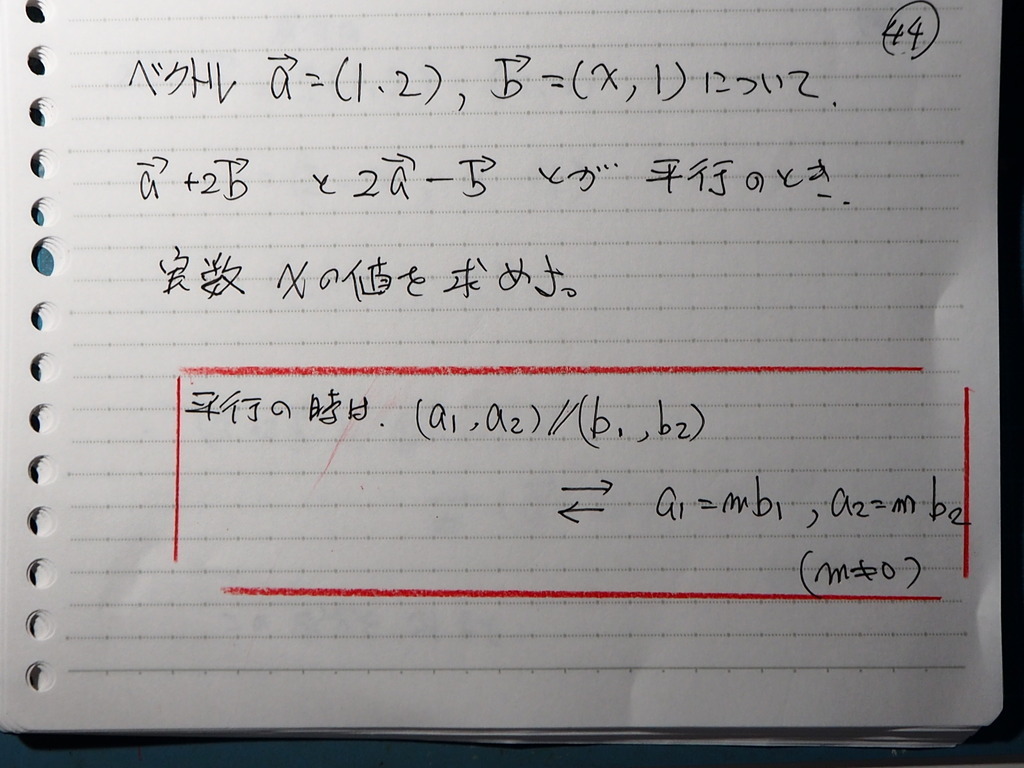 44
ベクトル a⃗=(1、2), b⃗=(x,1)について、
a⃗+2b⃗ と 2a⃗-b⃗ とが 平行のとき、
実数 xの値を求めよ。
平行の時は、(a1,a2)//(b1,b2)
⇄ a1=mb1, a2=mb2
(m≠0)